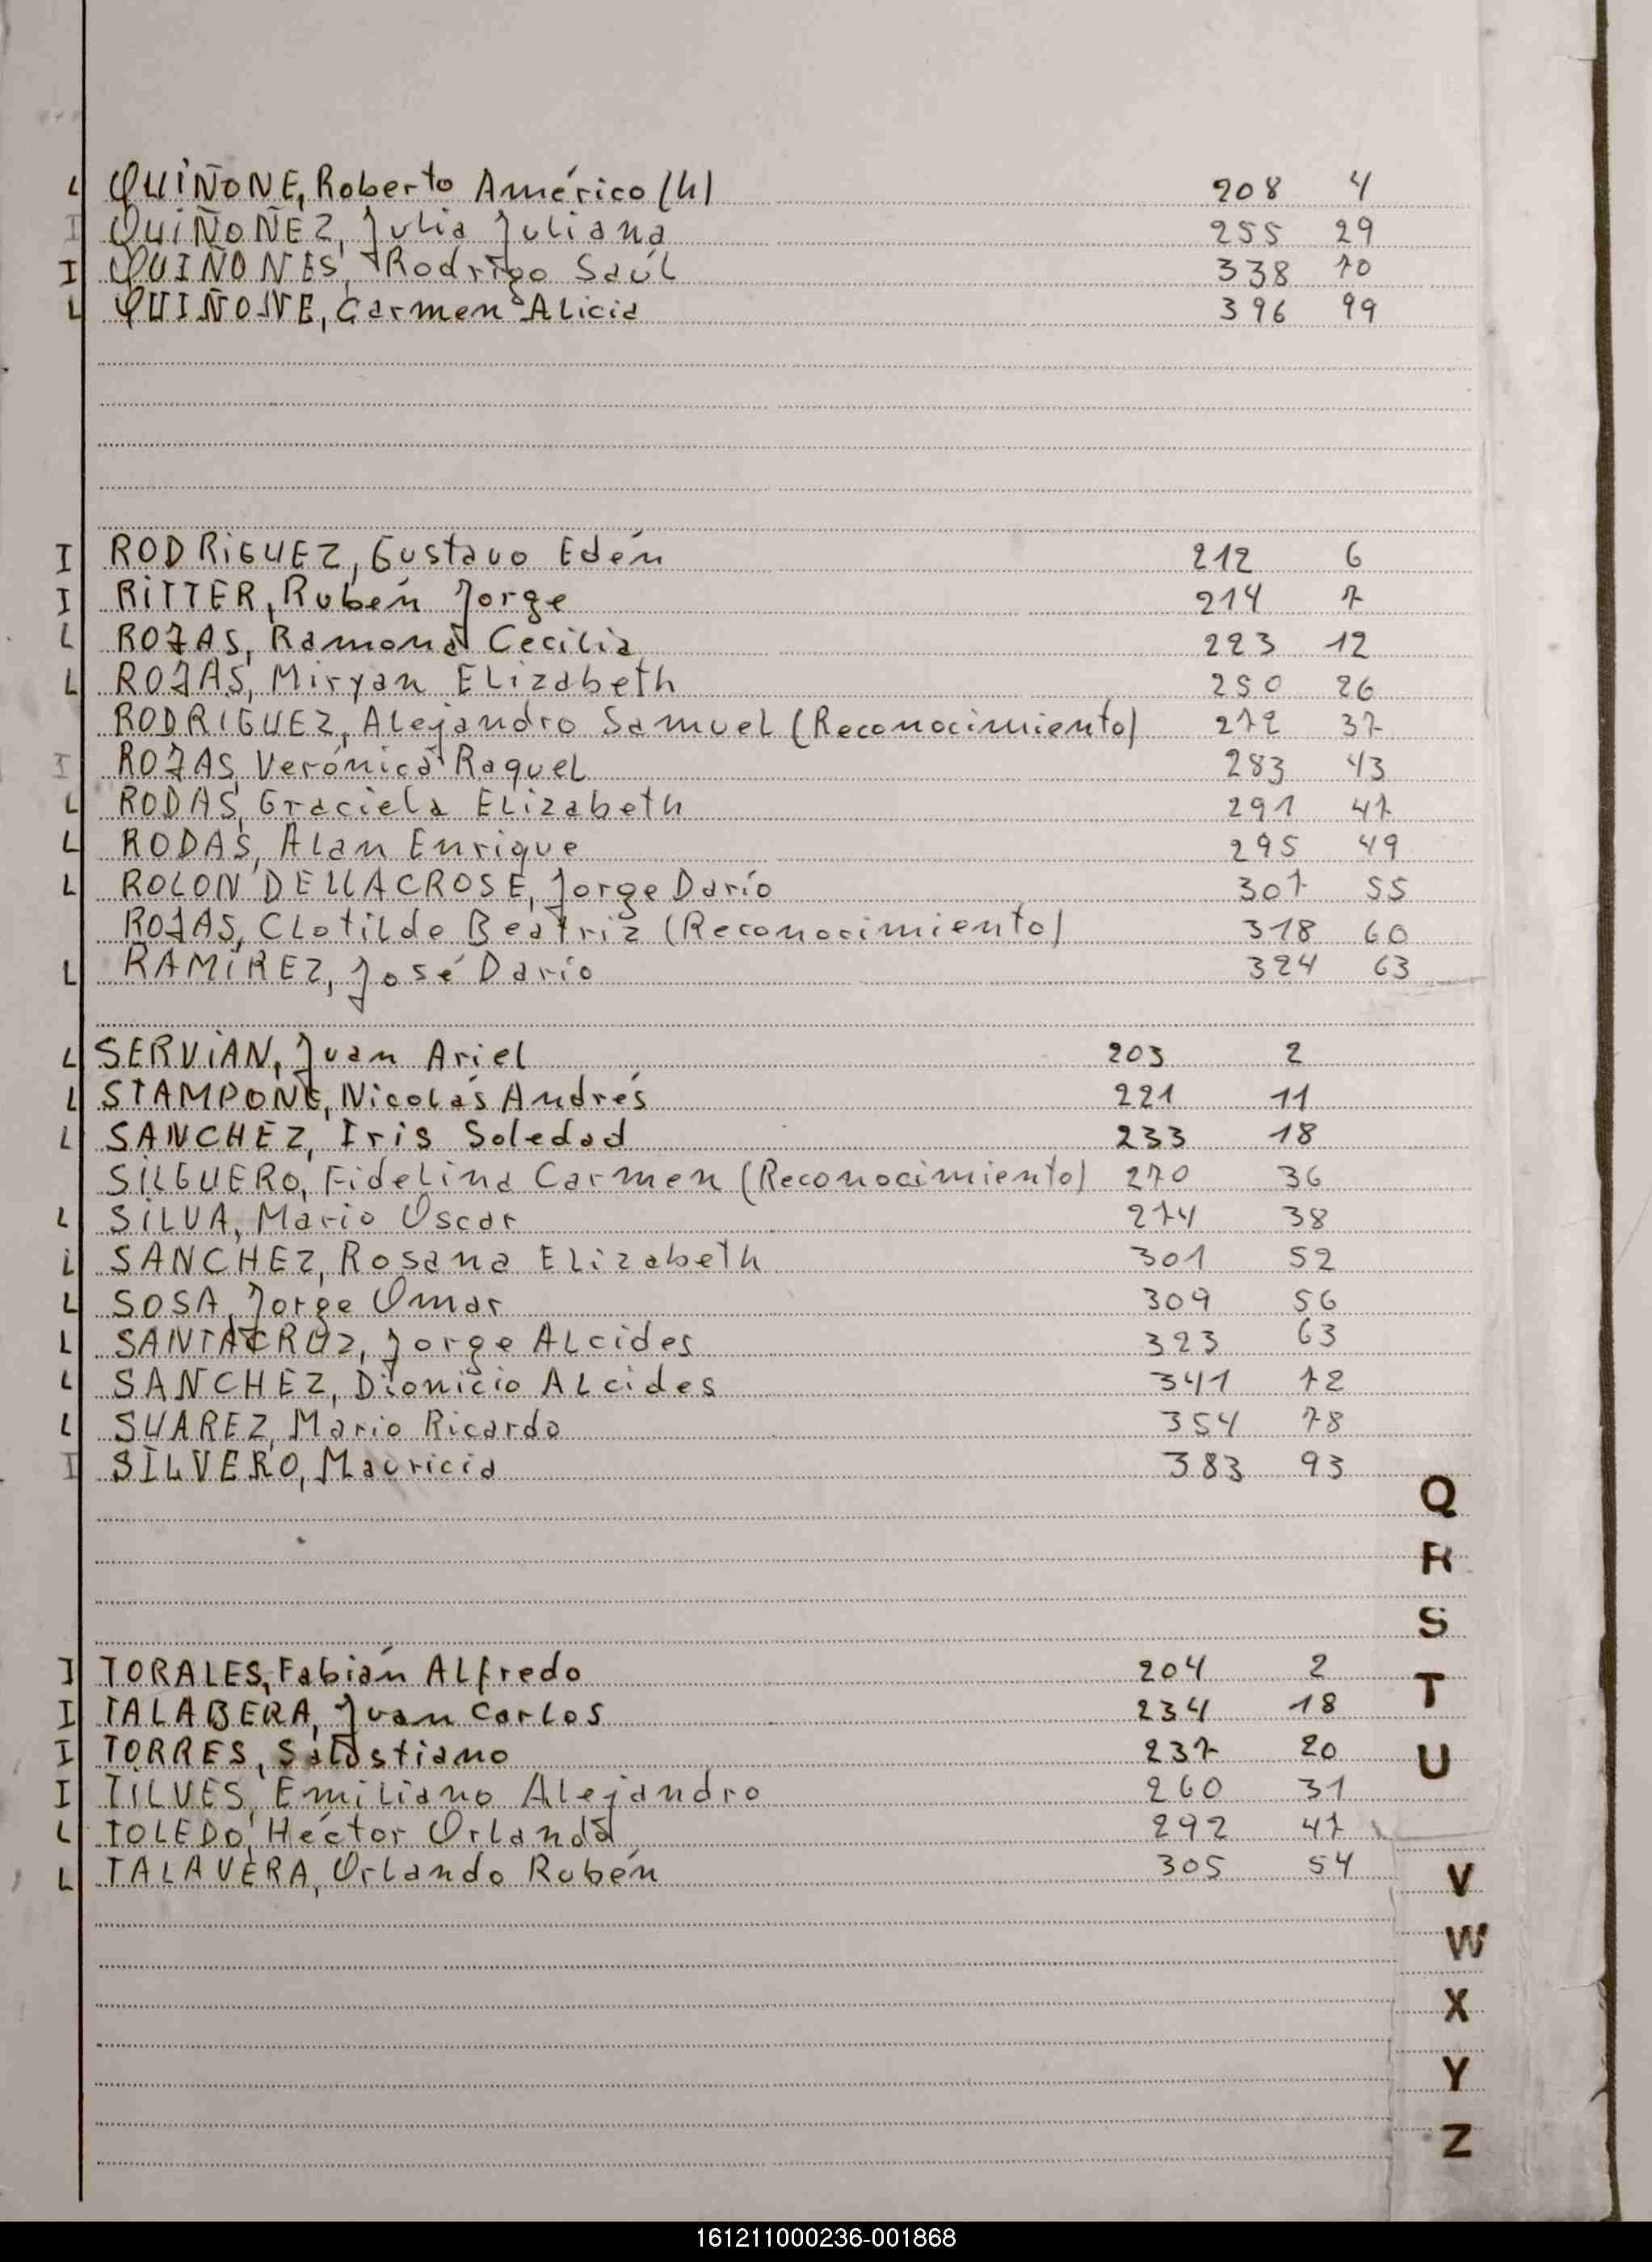 L QUIÑONE, Roberto Américo (h) 208 4
I QUIÑOÑEZ, Julia Juliana 255 29
I QUIÑONES, Rodrigo Saúl 338 70
L QUIÑONE, Carmen Alicia 396 99
I RODRIGUEZ, Gustavo Edén 212 6
I RITTER, Rubén Jorge 214 7
L ROJAS, Ramona Cecilia 223 12
L ROJAS, Miryan Elizabeth 250 26
RODRIGUEZ, Alejandro Samuel (Reconocimiento) 272 37
I ROJAS, Verónica Raquel 283 43
L RODAS, Graciela Elizabeth 291 47
L RODAS, Alan Enrique 295 49
L ROLON DELLACROSE, Jorge Darío 307 55
ROJAS, Clotilde Beatriz (Reconocimiento) 318 60
L RAMÍREZ, José Darío 324 63
L SERVIAN, Juan Ariel 203 2
L STAMPONE, Nicolás Andrés 221 11
L SANCHEZ, Iris Soledad 233 18
SILGUERO, Fidelina Carmen (Reconocimiento) 270 36
L SILVA, Mario Oscar 274 38
L SANCHEZ, Rosana Elizabeth 301 52
L SOSA, Jorge Omar 309 56
L SANTACRUZ, Jorge Alcides 323 63
L SANCHEZ, Dionicio Alcides 341 72
L SUAREZ, Mario Ricardo 354 78
I SILVERO, Mauricia 383 93
Q
R
S
I TORALES, Fabián Alfredo 204 2
T
I TALABERA, Juan Carlos 234 18
I TORRES, Salustiano 237 20
U
I TILVES, Emiliano Alejandro 260 31
L TOLEDO, Héctor Orlando 292 47
L TALAVERA, Orlando Rubén 305 54
V
W
X
Y
Z
161211000236-001868